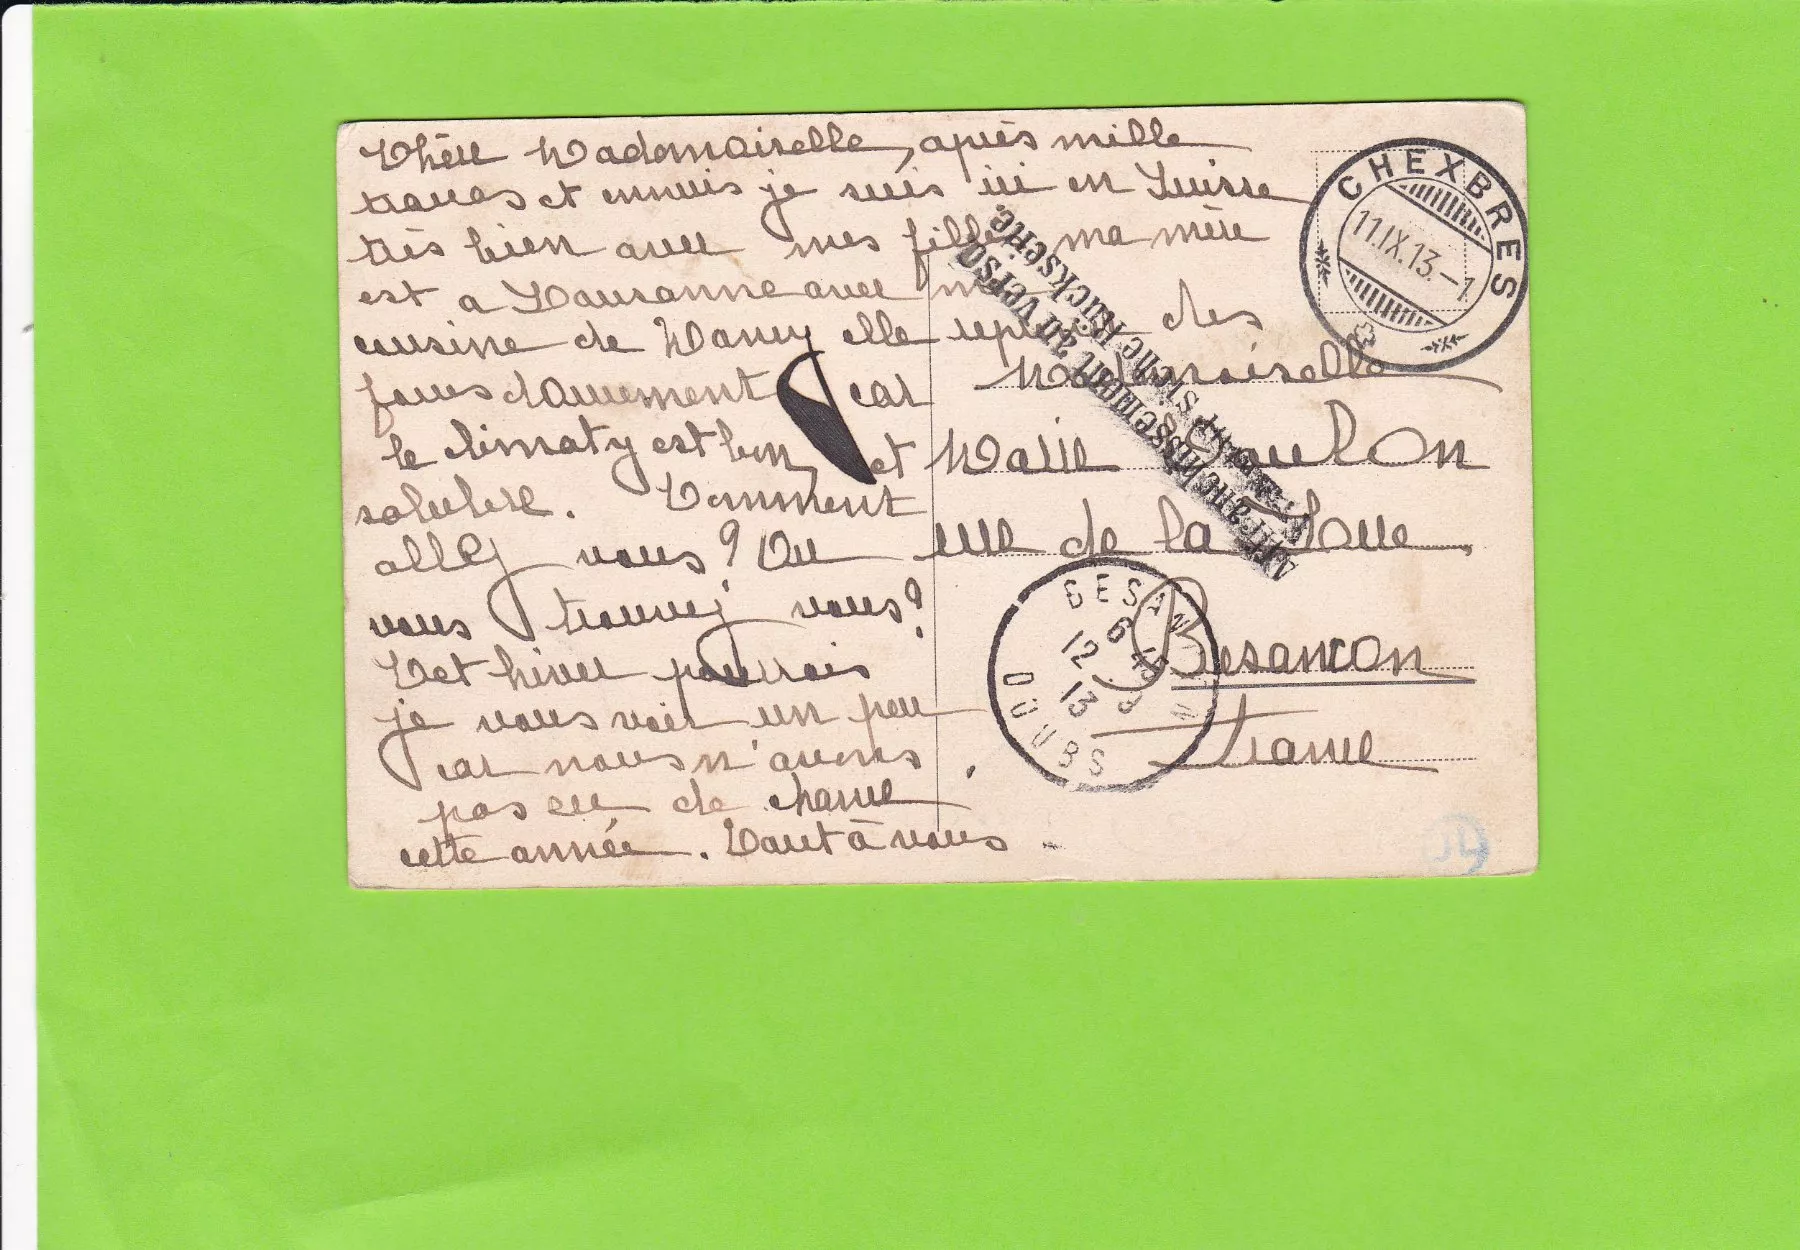 Chère Mademoiselle, après mille
tracas et ennuis je suis ici en Suisse
très bien avec mes filles, ma mère
est a Lausanne avec
cousine de Nancy elle reprend des
forces doucement car
le climat y est bon, et
salubre. Comment
allez vous? Ou
vous trouvez vous?
Cet hiver pourrais
je vous voir un peu
car nous n'avons
pas eu de chance
cette année. Tout à vous
CHEXBRES
11.IX.13.-1
Affranchissement au verso
Frankatur siehe Rückseite.
Mademoiselle
Marie
rue de la Loue
Besancon
France
BESAN N
6 45
12 9
13
DOUBS